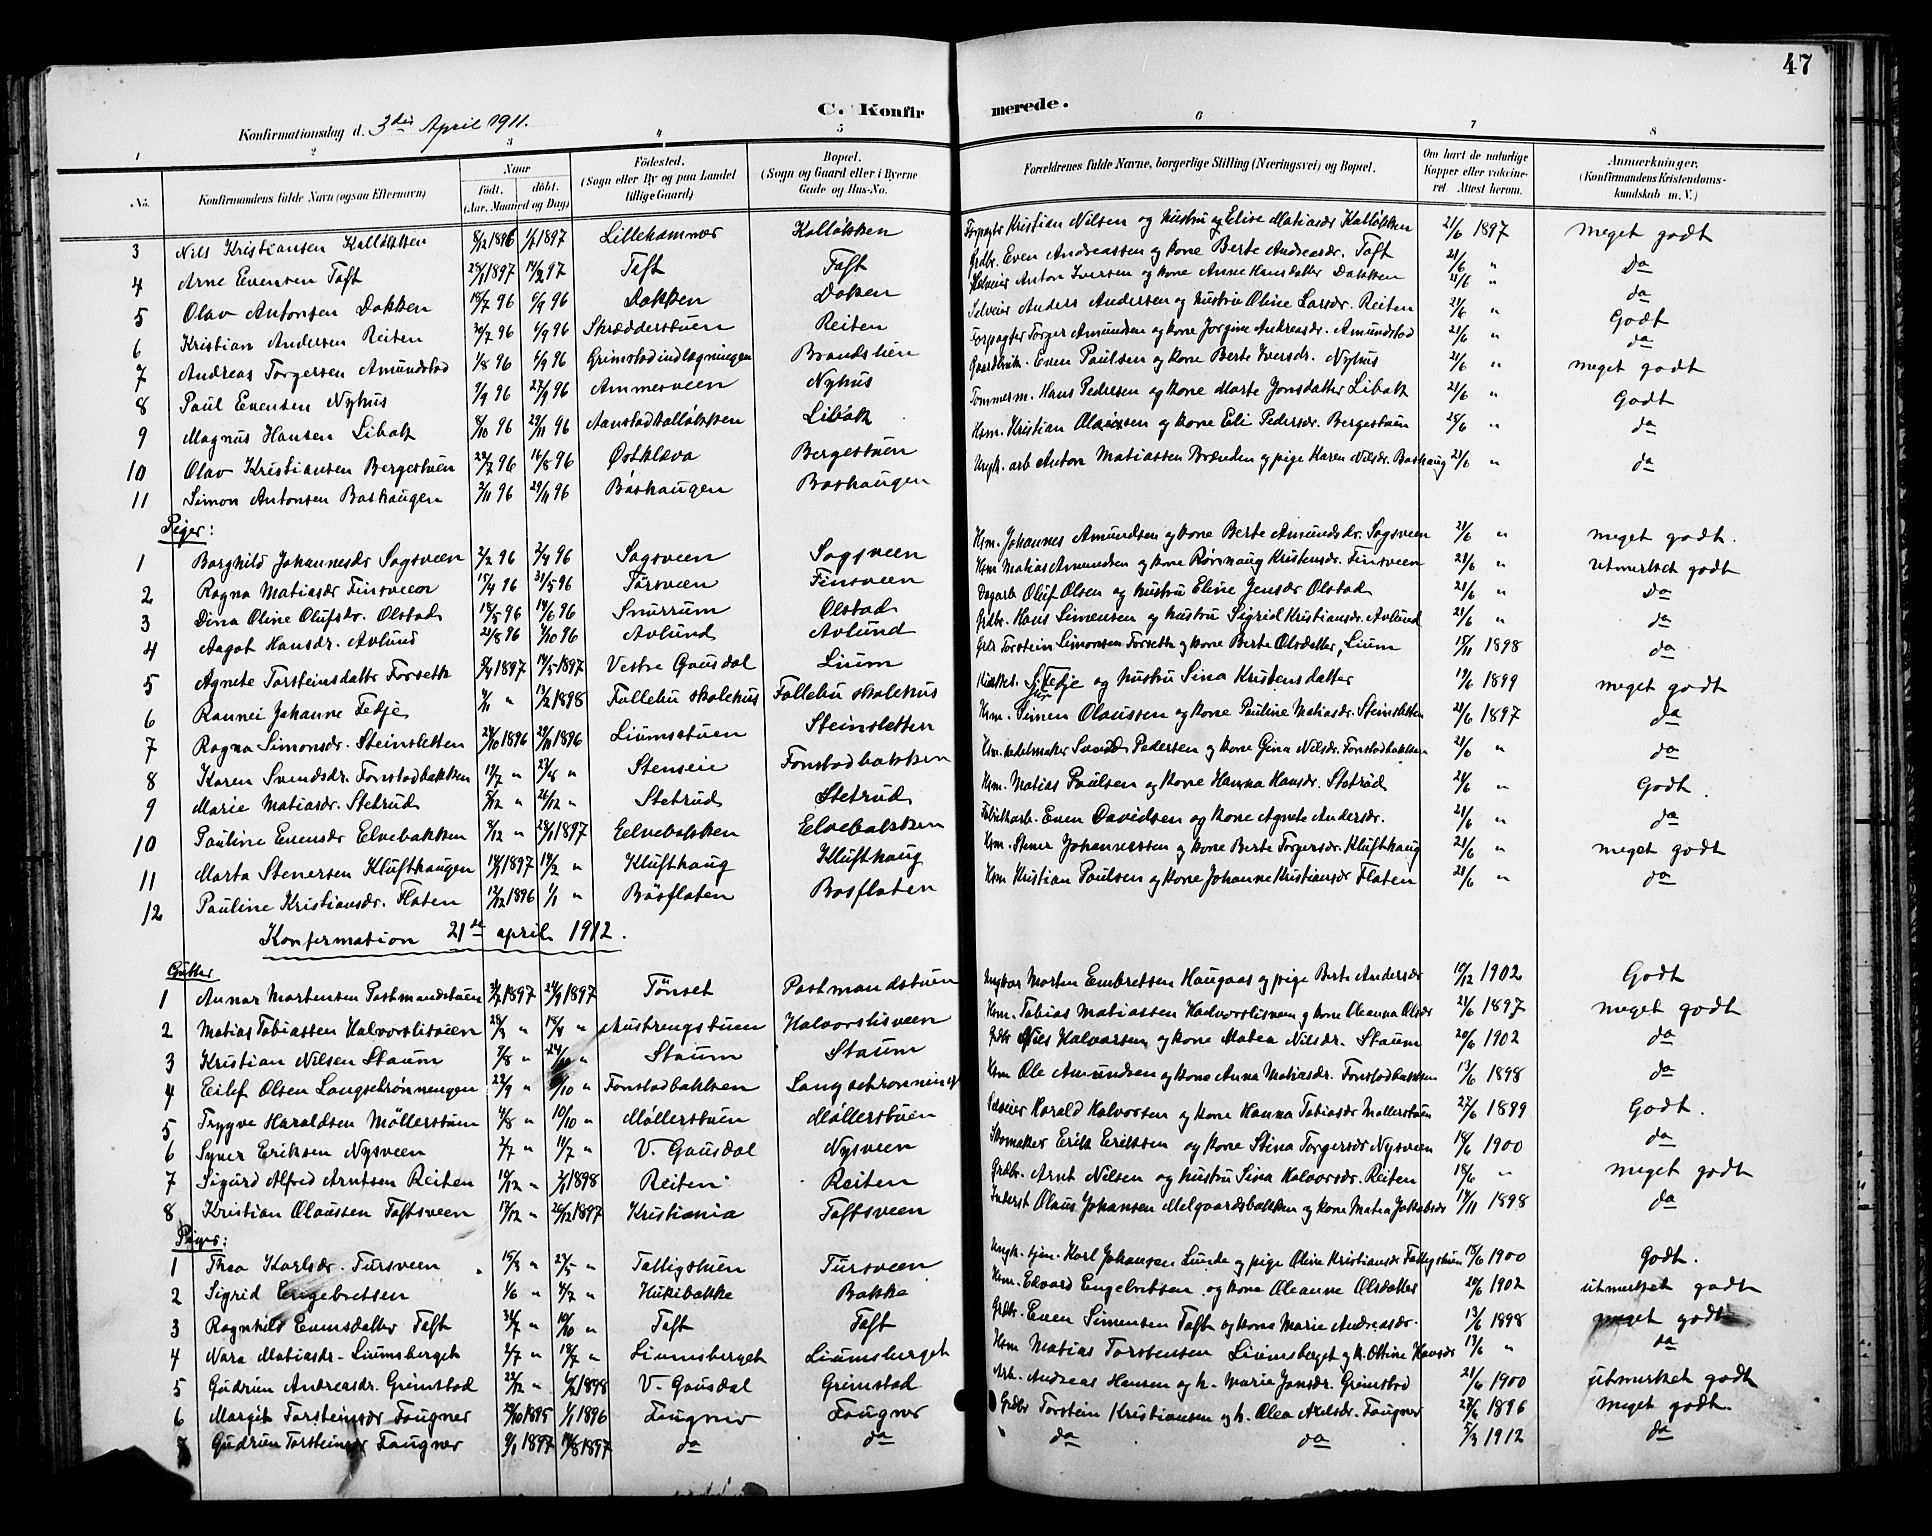 47
C. Konfirmerede.
Konfirmationsdag d. 3die April 1911.
1 2 3 4 5 6 7 8
No. Konfirmandens fulde Navn (ogsaa Efternavn) Naar født. døbt. (Aar. Maaned og Dag) Fødested. (Sogn eller By og paa Landet tillige Gaard) Bopæl. (Sogn og Gaard eller i Byerne Gade og Hus-No. Forældrenes fulde Navne, borgerlige Stilling (Næringsvei) og Bopæl. Om havt de naturlige Kopper eller vakcineret Attest herom. Anmærkninger. (Konfirmandens Kristendomskundskab m. V.)
3 Nils Kristiansen Kalløkken 8/12 1896 1/1 1897 Lillehammer Kalløkken Forpagter Kristian Nilsen og hustru Elise Matiasdr Kalløkken 21/6 1897 meget godt
4 Arne Evensen Taft 1897 14/2 97 Taft Taft Grdbr. Even Andreassen og kone Berte Andreasdr. Taft 21/6 " Da
5 Olav Antonsen Dakken 18/7 96 6/9 96 Dakken Daken Selveier Anton Iversen og kone Anne Hansdatter Dakken 21/6 " da
6 Kristian Andersen Reiten 30/7 96 6/9 96 Skrædderstuen Reiten Selveier Anders Andersen og hustru Oline Larsdr. Reiten 21/6 " Godt
7 Andreas Torgersen Amundstad 1/8 96 6/9 96 Grimstadindlægningen Brandslien Forpagter Torger Amundsen og kone Jørgine Andreasdr. Amundstad 21/6 " da
8 Paul Evensen Nyhus 9/9 96 27/9 96 Ammesveen Nyhus Gaardbruk. Even Paulsen og kone Berte Iversdr. Nyhus 21/6 " meget godt
9 Magnus Hansen Libak 8/10 96 29/11 96 Aanstadkalløkken Libak Tømmerm. Hans Pedersen og kone Marte Jonsdatter Libak 21/6 " Godt
10 Olav Kristiansen Bergestuen 22/7 96 16/8 96 Østklæva Bergestuen Hsm. Kristian Olausen og kone Eli Pedersdr. Bergestuen 25/6 " da
11 Simon Antonsen Bashaugen 2/11 96 29/11 96 Båshaugen Bashaugen Ungk. arb Anton Matiassen Brænden og pige Karen Nilsdr. Bashaug 21/6 " da
Piger:
1 Borghild Johannesdr Sagsveen 2/2 96 96 Sagsveen Sagsveen Hsm. Johannes Amundsen og kone Berte Amundsdr. Sagsveen 21/6 " meget godt.
2 Ragna Matiasdr Finsveen 15/4 96 31/5 96 Tørsveen Finsveen Hsm Matias Amundsen og kone Rønnaug Kristensdr. Finsveen 21/6 " utmerket godt
3 Dina Oline Olufsdr. Olstad 18/5 96 14/6 96 Snurrum Olstad Dagarb Oluf Olsen og hustru Eline Jensdr Olstad 21/6 " Da
4 Aagot Hansdr. Avlund 21/8 96 4/10 96 Avlund Avlund Grdbr. Hans Simensen og hustru Sigrid Kristiansdr. Avlund 21/6 " da
5 Agnete Torsteinsdatter Forseth 1897 1897 Vestre Gausdal Lium Grdbr Torstein Simonsen Forseth og kone Berte Olsdatter, Lium 15/11 1898 da
6 Rannei Johanne Fedje " 13/2 1898 Follebu skolehus Follebu skolehus Kirkes. Fedje og hustru Sina Kristensdatter 19/6 1899 meget godt
7 Ragna Simonsdr. Steinsletten 1896 1896 Liumsstuen Steinsletten Hsm. Simen Olaussen og kone Pauline Matiasdr. Steinsletten 21/6 1897 da
8 Karen Svendsdr. Fonstadbakken 19/7 " 23/8 " Stenseie Fonstadbakken Hsm. Svend Pedersen og kone Gina Nilsdr. Fonstadbakken 21/6 " da
9 Marie Matiasdr. Stetrud 5/12 " 26/12 " Stetrud Stetrud Hsm. Matias Paulsen og kone Hanna Hansdr. Stetrud 21/6 " Godt.
10 Pauline Evensdr Elvebakken 8/12 " 28/1 1897 Eelvebakken Eelvebakken Fabrikarb. Even Davidsen og kone Agnete Andersdr. 21/6 " da
11 Marta Stenersen Klufthaugen 1897 14/2 " Klufthaug Klufthaug Hsm. Stener Johannessen og kone Berte Torgersdr. Klufthaug 21/6 " meget godt
12 Pauline Kristiansdr. Flaten 13/12 1896 1/1 " Båsflaten Basflaten Hsm Kristian Paulsen og kone Johanne Kristiansdr Flaten 21/6 " da
Konfirmation 21de april 1912.
Gutter
1 Annar Mortensen Postmandstuen 1897 1897 Tönset Postmandstuen Ungkar Morten Embretsen Haugaas og pige Berte Andersdr 10/12 1902 Godt
2 Matias Tobiassen Halvorslisveen " " Austrengstuen Halvorslisveen Hsm. Tobias Matiassen Halvorslisveen og kone Oleanna Olsdr 21/6 1897 meget godt
3 Kristian Nilsen Staum 7/8 " " Staum Staum Grdbr Nils Halvorsen og kone Matea Nilsdr. Staum 20/6 1902 da
4 Eilef Olsen Langsetrønningen 22/9 " /10 " Fonstadbakken Langsetrønning Hsm Ole Amundsen og kone Anna Matiasdr. Fonstadbakken 13/6 1898 da
5 Trygve Haraldsen Möllerstuen 4/8 " 10/10 " Møllerstuen Møllerstuen Selveier Harald Halvorsen og kone Hanna Tobiasdr Møllerstuen 27/6 1899 Godt.
6 Syver Eriksen Nysveen 2/7 " 11/7 " V. Gausdal Nysveen Skomaker Erik Eriksen og kone Stina Torgersdr Nysveen 18/6 1900 da
7 Sigurd Alfred Arntsen Reiten 10/12 " 2/1 1898 Reiten Reiten Grdbr. Arnt Nilsen og hustru Sina Halvorsdr. Reiten 18/6 " meget godt
8 Kristian Olaussen Taftsveen 17/12 " 26/12 1897 Kristiania Taftsveen Inderst Olaus Johansen Melgaardsbakken og kone Matea Jakobsdr 14/11 1898 da
Piger:
1 Thea Karlsdr. Tursveen 15/3 " 23/5 " Fattigstuen Tursveen Ungk. tjen. Karl Johansen Lunde og pige Oline Kristiansdr Fattigstuen 18/6 1900 Godt.
2 Sigrid Engebretsen 1/6 " 4/7 " Hukibakke Bakke Hsm. Edvard Engebretsen og kone Oleanne Olsdatter 20/6 1902 utmerket godt
3 Ragnhild Evensdatter Taft " 10/10 " Taft Taft Grdbr. Even Simensen Taft og kone Marie Andreasdr. 13/6 1898 meget godt
4 Nora Matiasdr. Liumsberget 2/7 " 18/7 " Liumsberget Liumsberget Hsm Matias Torstensen Liumsberget og k. Ottine Hansdr 13/6 " da
5 Gudrun Andreasdr. Grimstad 22/12 " 1898 V. Gausdal Grimstad Arb. Andreas Hansen og h. Marie Jansdr. Grimstad 21/6 1900 utmerket godt
6 Margit Torsteinsdr Fougner 20/10 1895 1/1 1896 Fougner Fougner Grdbr Torstein Kristiansen og h. Olea Axelsdr. Fougner 1896 meget godt.
7 Gudrun Torsteinsdr Fougner 9/1 1897 1897 da da " da da 5/3 1912 da